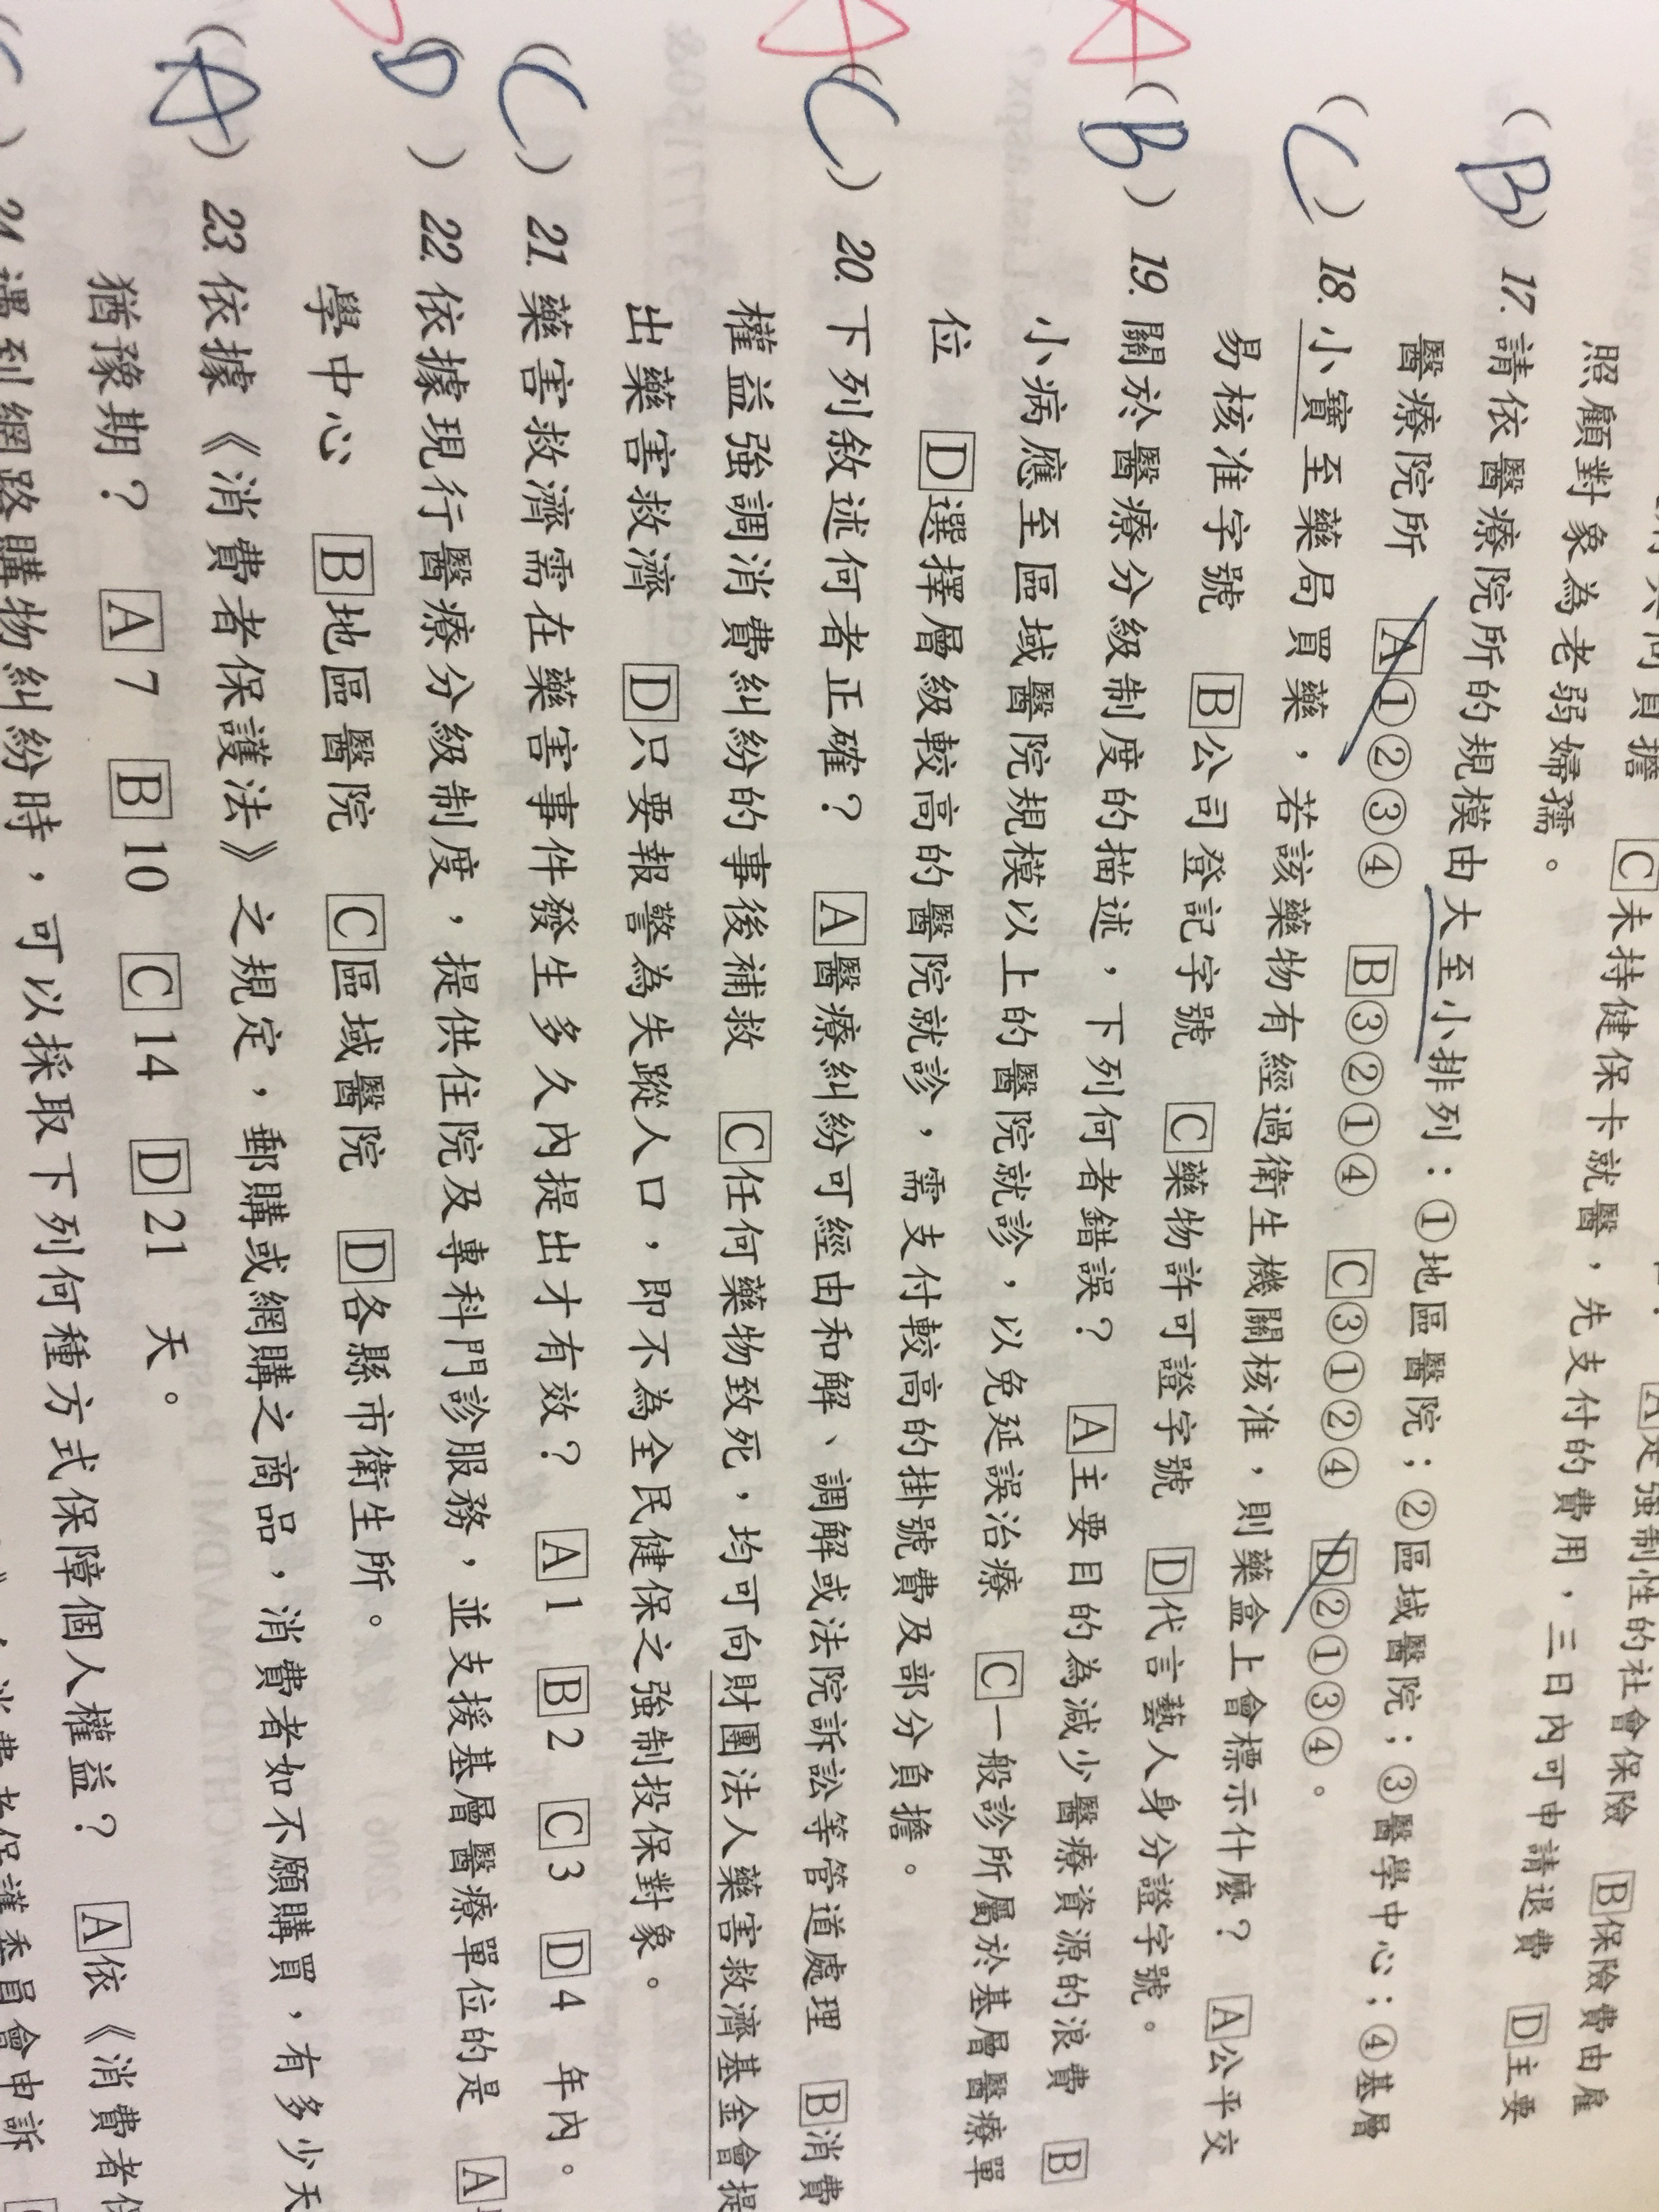 照顧對象為老弱婦孺。
未持健保卡就醫，先支付的費用，三日內可申請退費 D主要
是強制性的社會保險 B保險費由雇
(B) 17. 請依醫療院所的規模由大至小排列：①地區醫院；②區域醫院；③醫學中心；④基層
醫療院所 A①②③④ B③②①④ C③①②④ D②①③④。
(C) 18. 小寶至藥局買藥，若該藥物有經過衛生機關核准，則藥盒上會標示什麼？ A公平交
易核准字號 B公司登記字號 C藥物許可證字號 D代言藝人身分證字號。
(B) 19. 關於醫療分級制度的描述，下列何者錯誤？ A主要目的為減少醫療資源的浪費 B
小病應至區域醫院規模以上的醫院就診，以免延誤治療 C一般診所屬於基層醫療單
位 D選擇層級較高的醫院就診，需支付較高的掛號費及部分負擔。
(C) 20. 下列敘述何者正確？ A醫療糾紛可經由和解、調解或法院訴訟等管道處理 B消費
權益強調消費糾紛的事後補救 C任何藥物致死，均可向財團法人藥害救濟基金會提
出藥害救濟 D只要報警為失蹤人口，即不為全民健保之強制投保對象。
(C) 21. 藥害救濟需在藥害事件發生多久內提出才有效？ A1 B2 C3 D4 年內。
(D) 22. 依據現行醫療分級制度，提供住院及專科門診服務，並支援基層醫療單位的是 A
學中心 B地區醫院 C區域醫院 D各縣市衛生所。
(A) 23. 依據《消費者保護法》之規定，郵購或網購之商品，消費者如不願購買，有多少天
猶豫期？ A7 B10 C14 D21 天。
24. 遇到網路購物糾紛時，可以採取下列何種方式保障個人權益？ A依《消費者保
消費者保護委員會申訴